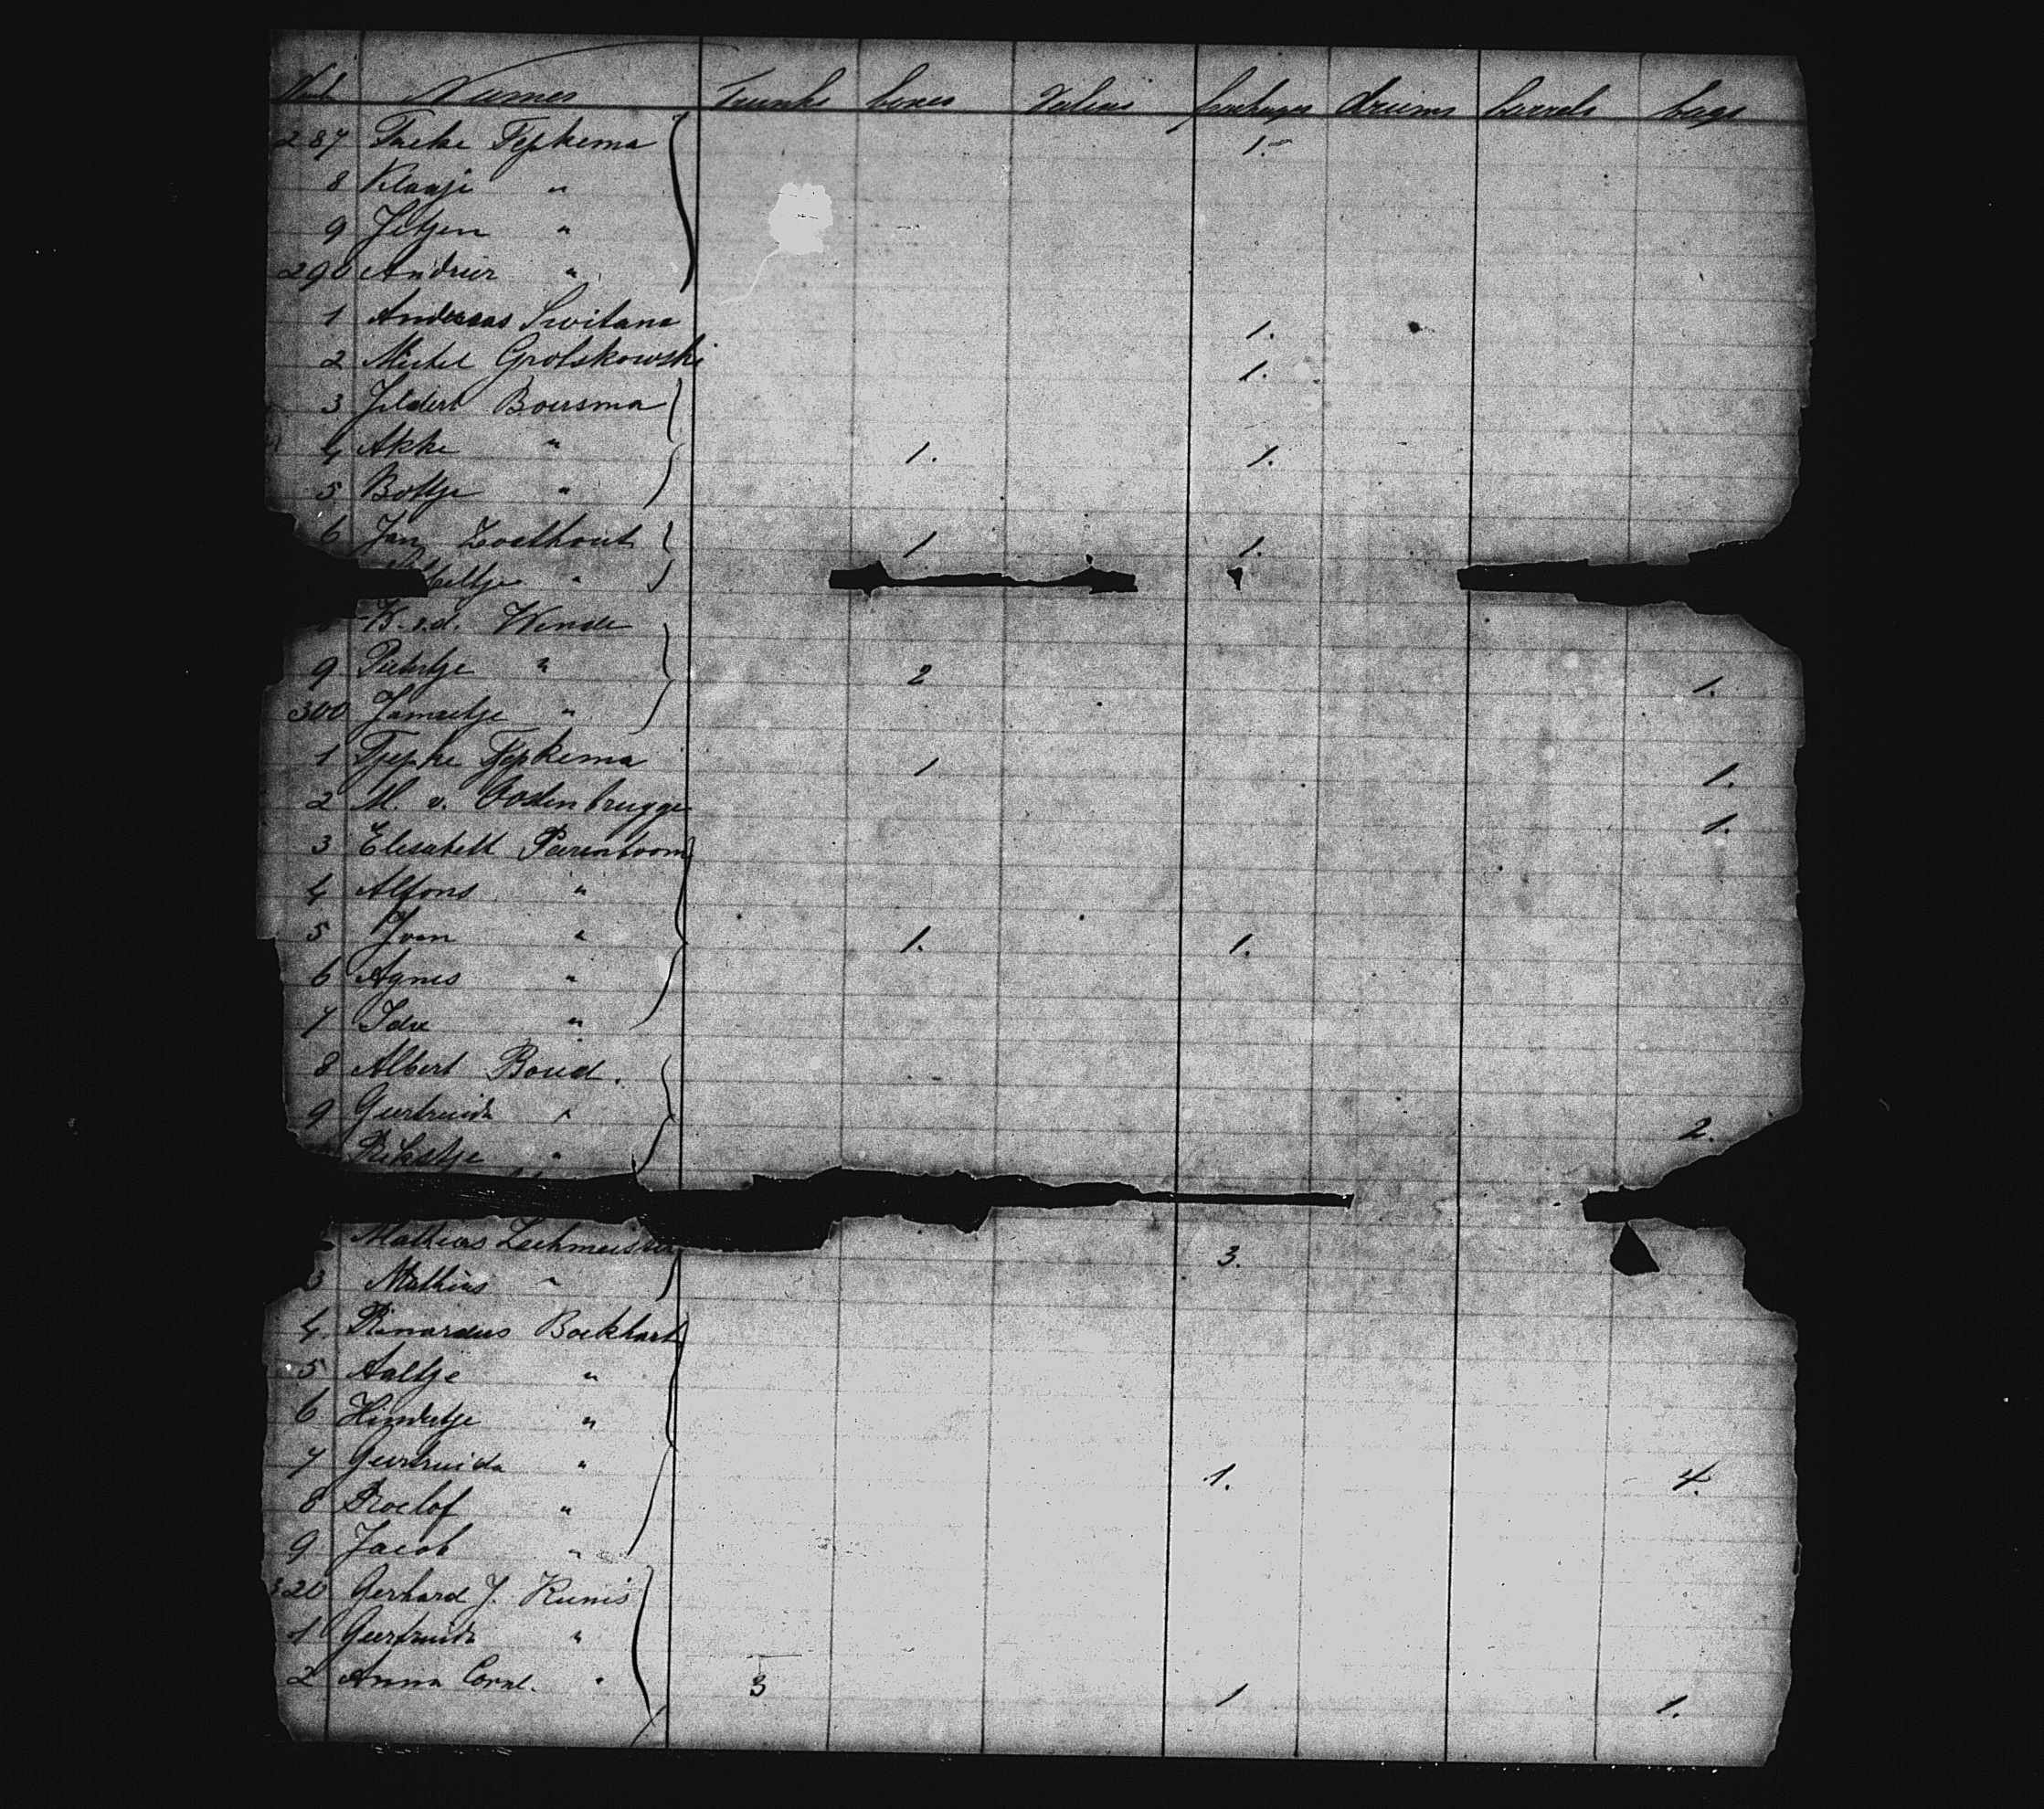 Names Trunks boxes Valises packages drums barrels bags
287 Taeke Fepkema 1.
8 Klaasje "
9 Jetjen "
290 Andries "
1 Andreas Switana 1.
2 Michel Grotskowski 1.
3 Jeldert Boersma
4 Akke " 1. 1.
5 Bottje "
6 Jan Zoethout 1. 1.
"
Wende
9 Pietertje " 2 1.
300 Jansetje "
1 Tjepke Fepkema 1 1.
2 M. v. Oostenbrugge 1.
3 Elisabeth Peerenboom
4 Alfons "
5 Ivan " 1. 1.
6 Agnes "
7 Ida "
8 Albert Boud.
9 Geertruida " 2.
Rikstje "
Mathias Lechmeister 3.
3 Mathias "
4. Rinardus Boekhart
5 Aaltje "
6 Hendertje "
7 Geertruida " 1. 4.
8 Roelof "
9 Jacob "
320 Gerhard J. Kunis
1 Geertruida "
2 Anna Corn. " 3 1 1.